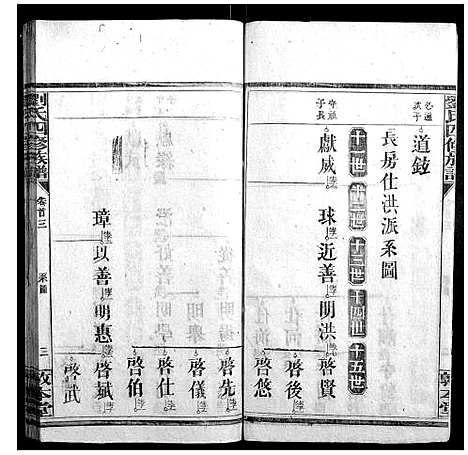 劉氏四修族譜
必通
次子
道鈸
長房仕洪派系圖
十一世 十二世 十三世 十四世 十五世
守福
子長
獻威 球 近善 明洪 啓賢
啓後
啓悠
敦本堂
啓先
啓儀
啓仕
啓伯
璋 以善 明惠 啓斌
啓武
劉氏四修族譜
卷首三
系圖
三
敦本堂